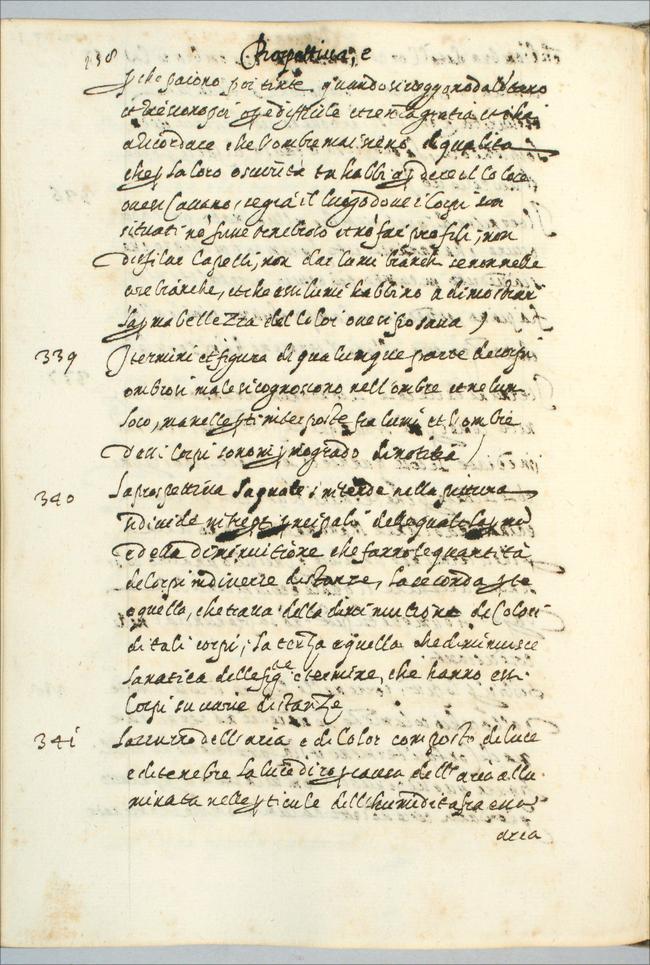 238 Prospettiva, e
che paiono poi tinte quando si veggono dal lontano
et difficile et senza gratia et
a ricordare che l'ombre mai sieno di qualita
che p la loro oscurità tu habbi a pdere il colore
ove si causano, se già il luogo dove i corpi son
situati nō fusse tenebroso et nō far profili, non
disfilar capelli, non dar lumi bianchi se non nelle
cose bianche, et che essi lumi habbino a dimostrar
la pma bellezza del color ove si posano
339 I termini et figura di qualunque parte de corpi
ombrosi male si cognoscono nell'ombre et ne lumi
loro, ma nelle pti interposte fra lumi et l'ombre
delli corpi sono in pmo grado di notitia
340 La prospettiva la quale s'intende nella pittura
si divide in tre pti pncipali delle quale la pma
è della diminuitione che fanno le quantità
de corpi in diverse distanze, la seconda pte
è quella, che tratta della diminuitione de colori
di tali corpi; la terza è quella che diminuisce
la notitia delle figᵉ e termine, che hanno essi
corpi in varie distanze
341 L'azzurro dell'aria è di color composto di luce
e di tenebre la luce dico p causa dell'aria allu
minata nelle pticule dell'humidità fra essa
aria